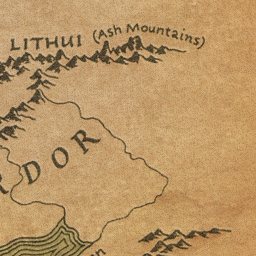 LITHUI (Ash Mountains)
RDOR